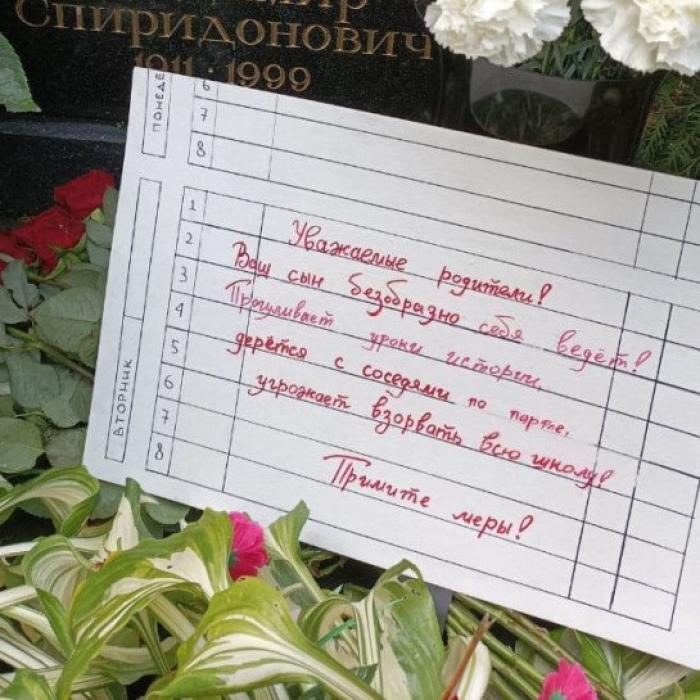 Спиридонович
1911 · 1999
ПОНЕДЕ
6
7
8
ВТОРНИК
1
2
3
4
5
6
7
8
Уважаемые родители!
Ваш сын безобразно себя ведёт!
Прогуливает уроки истории,
дерётся с соседями по парте,
угрожает взорвать всю школу!
Примите меры!